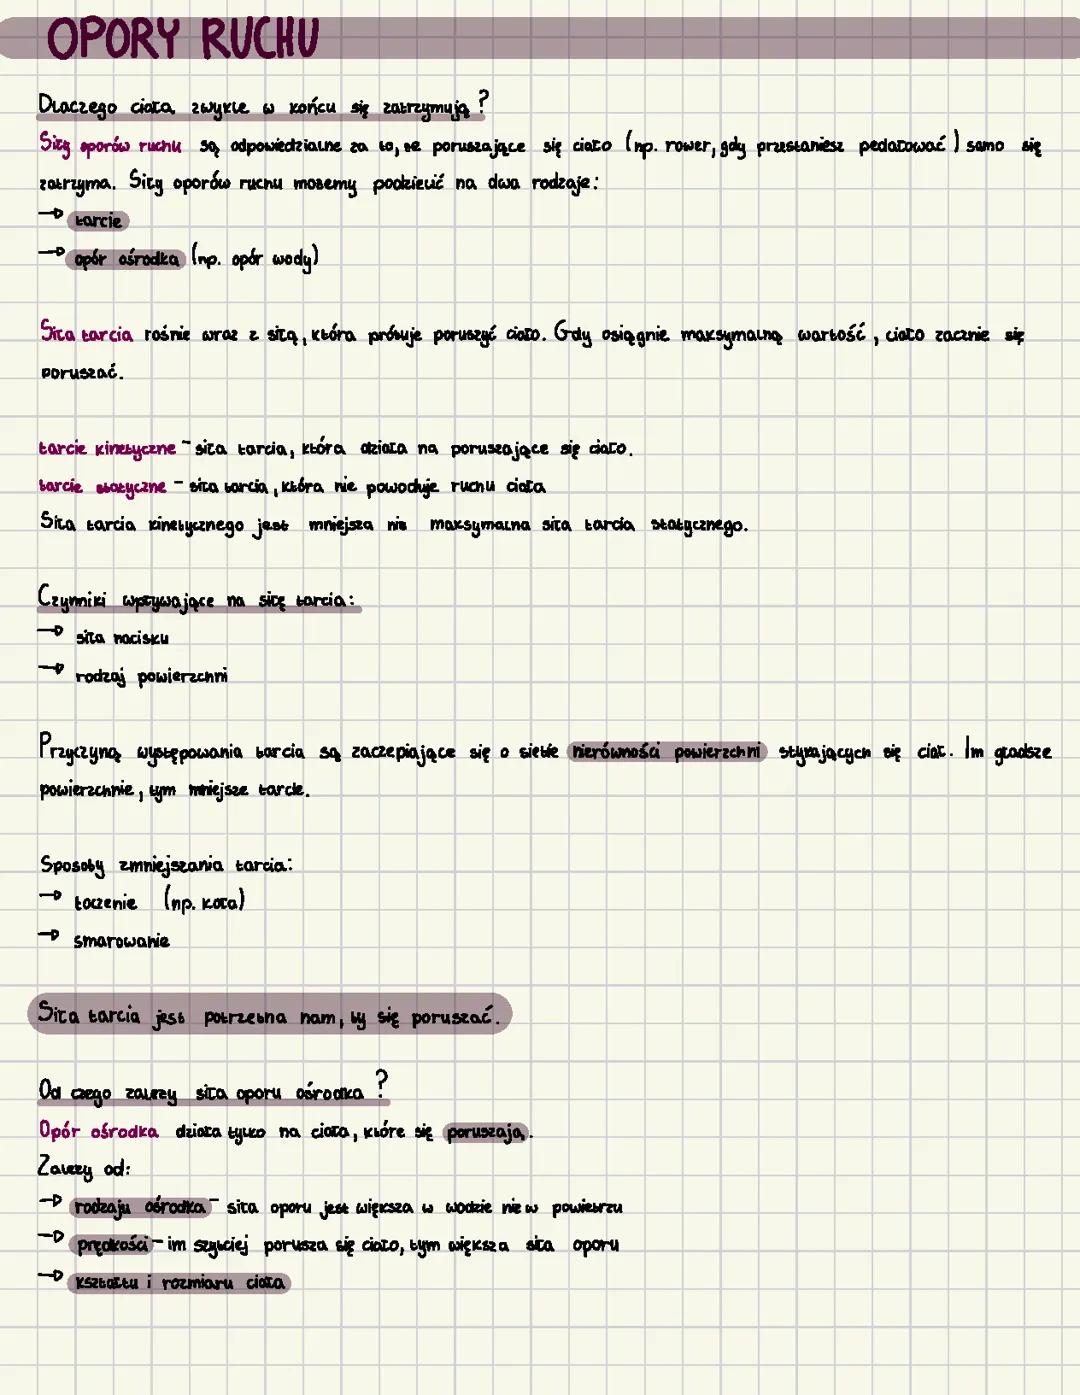 OPORY RUCHU
Dlaczego ciała zwykle w końcu się zatrzymują?
Siły oporów ruchu są odpowiedzialne za to, że poruszające się ciało (np. rower, gdy przestaniesz pedałować) samo się
zatrzyma. Siły oporów ruchu możemy podzielić na dwa rodzaje:
→ tarcie
→ opór ośrodka (np. opór wody)
Siła tarcia rośnie wraz z siłą, która próbuje poruszyć ciało. Gdy osiągnie maksymalną wartość, ciało zacznie się
poruszać.
tarcie kinetyczne - siła tarcia, która działa na poruszające się ciało.
tarcie statyczne - siła tarcia, która nie powoduje ruchu ciała
Siła tarcia kinetycznego jest mniejsza niż maksymalna siła tarcia statycznego.
Czynniki wpływające na siłę tarcia:
→ siła nacisku
→ rodzaj powierzchni
Przyczyną występowania tarcia są zaczepiające się o siebie nierówności powierzchni stykających się ciał. Im gładsze
powierzchnie, tym mniejsze tarcie.
Sposoby zmniejszania tarcia:
→ toczenie (np. koła)
→ smarowanie
Siła tarcia jest potrzebna nam, by się poruszać.
Od czego zależy siła oporu ośrodka?
Opór ośrodka działa tylko na ciała, które się poruszają.
Zależy od:
→ rodzaju ośrodka - siła oporu jest większa w wodzie niż w powietrzu
→ prędkości - im szybciej porusza się ciało, tym większa siła oporu
→ kształtu i rozmiaru ciała